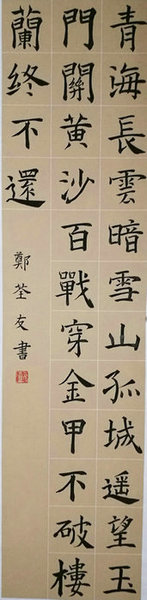 青海長雲暗雪山孤城遥望玉
門關黄沙百戰穿金甲不破樓
蘭終不還
鄭荃友書